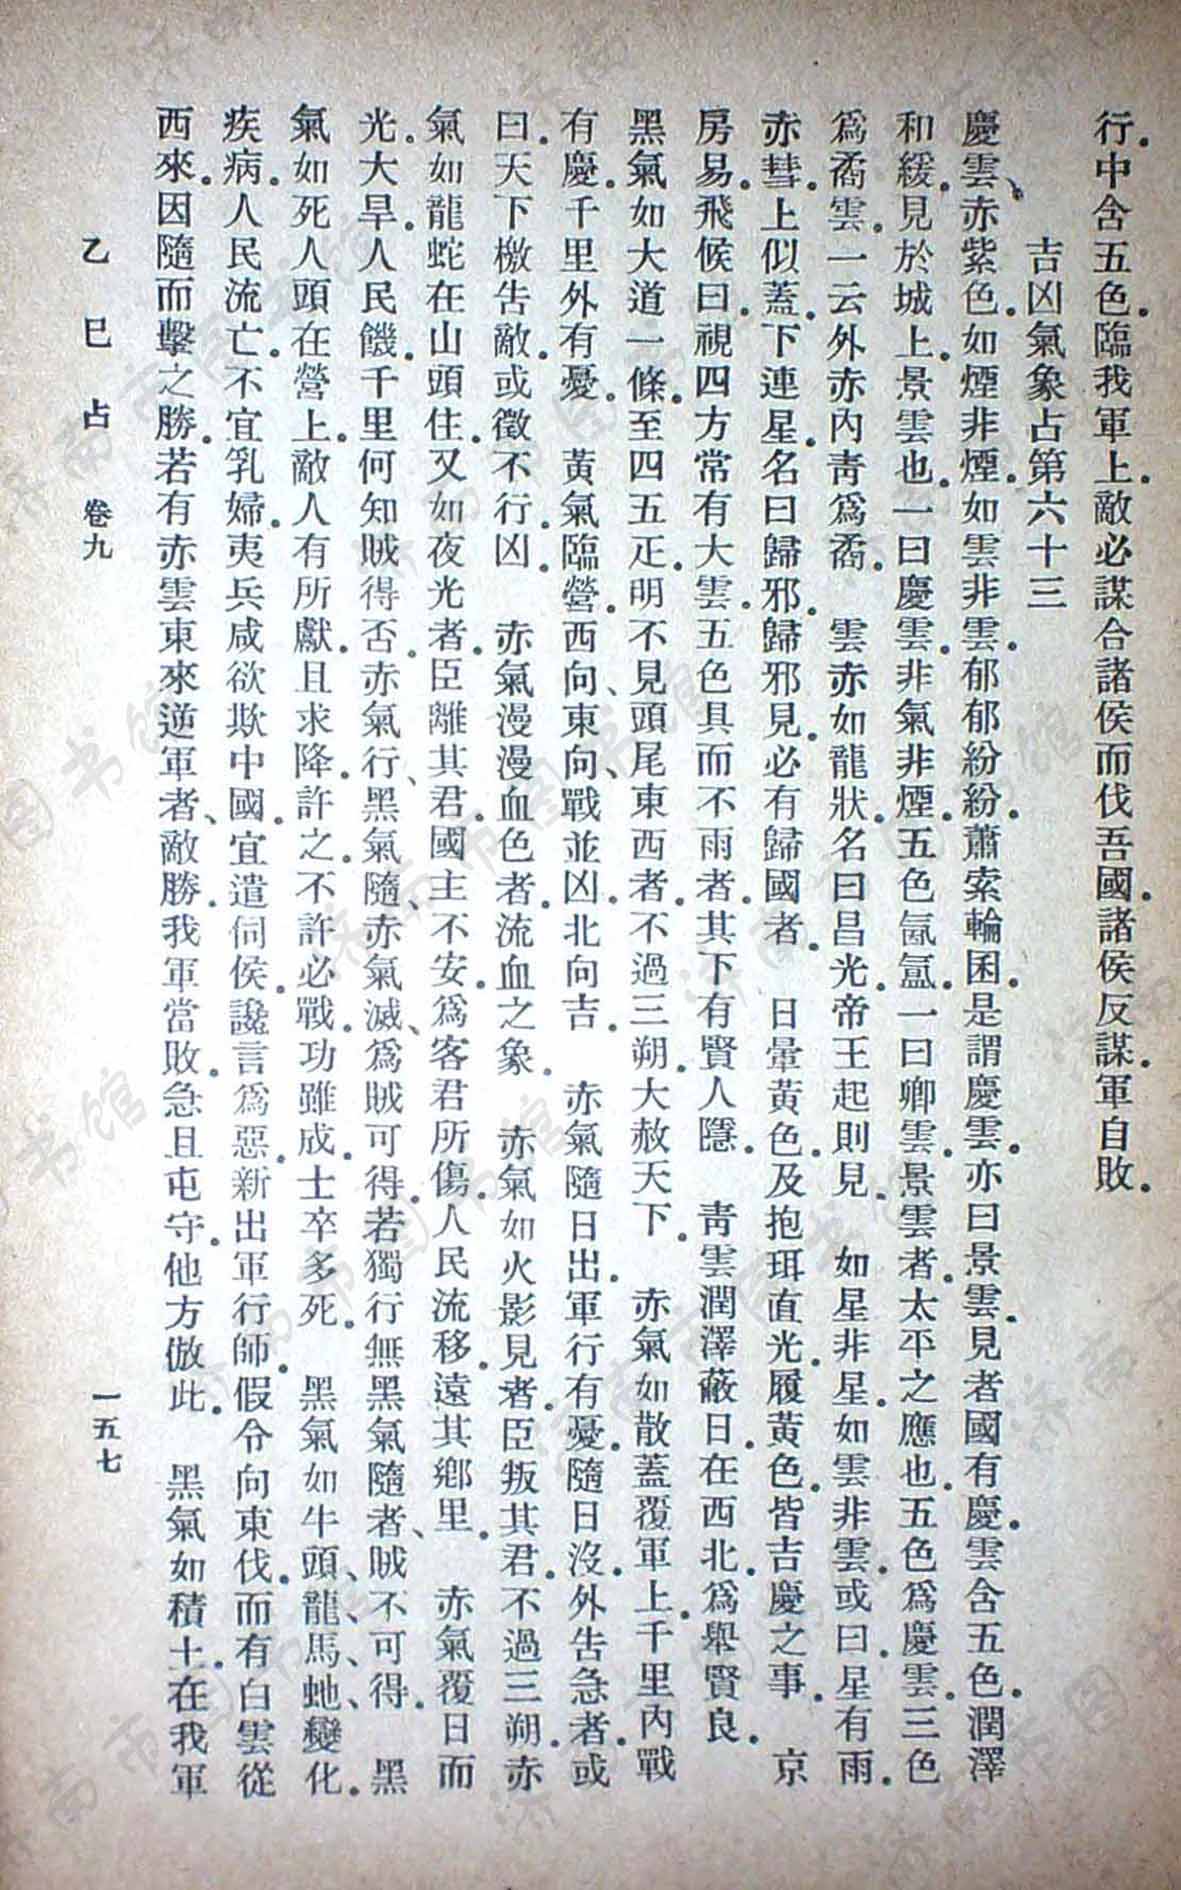 行。中含五色。臨我軍上。敵必謀合諸侯而伐吾國。諸侯反謀。軍自敗。
吉凶氣象占第六十三
慶雲、赤紫色。如煙非煙。如雲非雲。郁郁紛紛。蕭索輪囷。是謂慶雲。亦曰景雲。見者國有慶。雲含五色。潤澤
和緩。見於城上。景雲也。一曰慶雲。非氣非煙。五色氤氳。一曰卿雲。景雲者。太平之應也。五色爲慶雲。三色
爲矞雲。一云外赤內靑爲矞。　雲赤如龍狀。名曰昌光。帝王起則見。　如星非星。如雲非雲。或曰。星有雨。
赤彗。上似蓋。下連星。名曰歸邪。歸邪見。必有歸國者。　日暈黃色。及抱珥直光。履黃色。皆吉慶之事。　京
房易。飛候曰。視四方常有大雲。五色具而不雨者。其下有賢人隱。　靑雲潤澤蔽日。在西北。爲舉賢良。
黑氣如大道一條。至四五疋。明不見頭尾東西者。不過三朔。大赦天下。　赤氣如散蓋覆軍上。千里內戰
有慶。千里外有憂。　黃氣臨營。西向、東向、戰並凶。北向吉。　赤氣隨日出。軍行有憂。隨日沒。外告急者。或
曰。天下檄告敵。或徵不行。凶。　赤氣漫漫血色者。流血之象。　赤氣如火影見者。臣叛其君。不過三朔。赤
氣如龍蛇在山頭住。又如夜光者。臣離其君。國主不安。爲客君所傷。人民流移。遠其鄉里。　赤氣覆日而
光。大旱。人民饑。千里何知賊得否。赤氣行、黑氣隨、赤氣滅、爲賊可得。若獨行無黑氣隨者、賊不可得。　黑
氣如死人頭在營上。敵人有所獻。且求降。許之。不許必戰。功雖成。士卒多死。　黑氣如牛頭、龍馬、虵、變化。
疾病。人民流亡。不宜乳婦。夷兵咸欲欺中國。宜遣伺侯。讒言爲惡。新出軍行師。假令向東伐。而有白雲從
西來。因隨而擊之勝。若有赤雲東來逆軍者、敵勝。我軍當敗。急且屯守。他方倣此。　黑氣如積土。在我軍
乙巳占　卷九　一五七